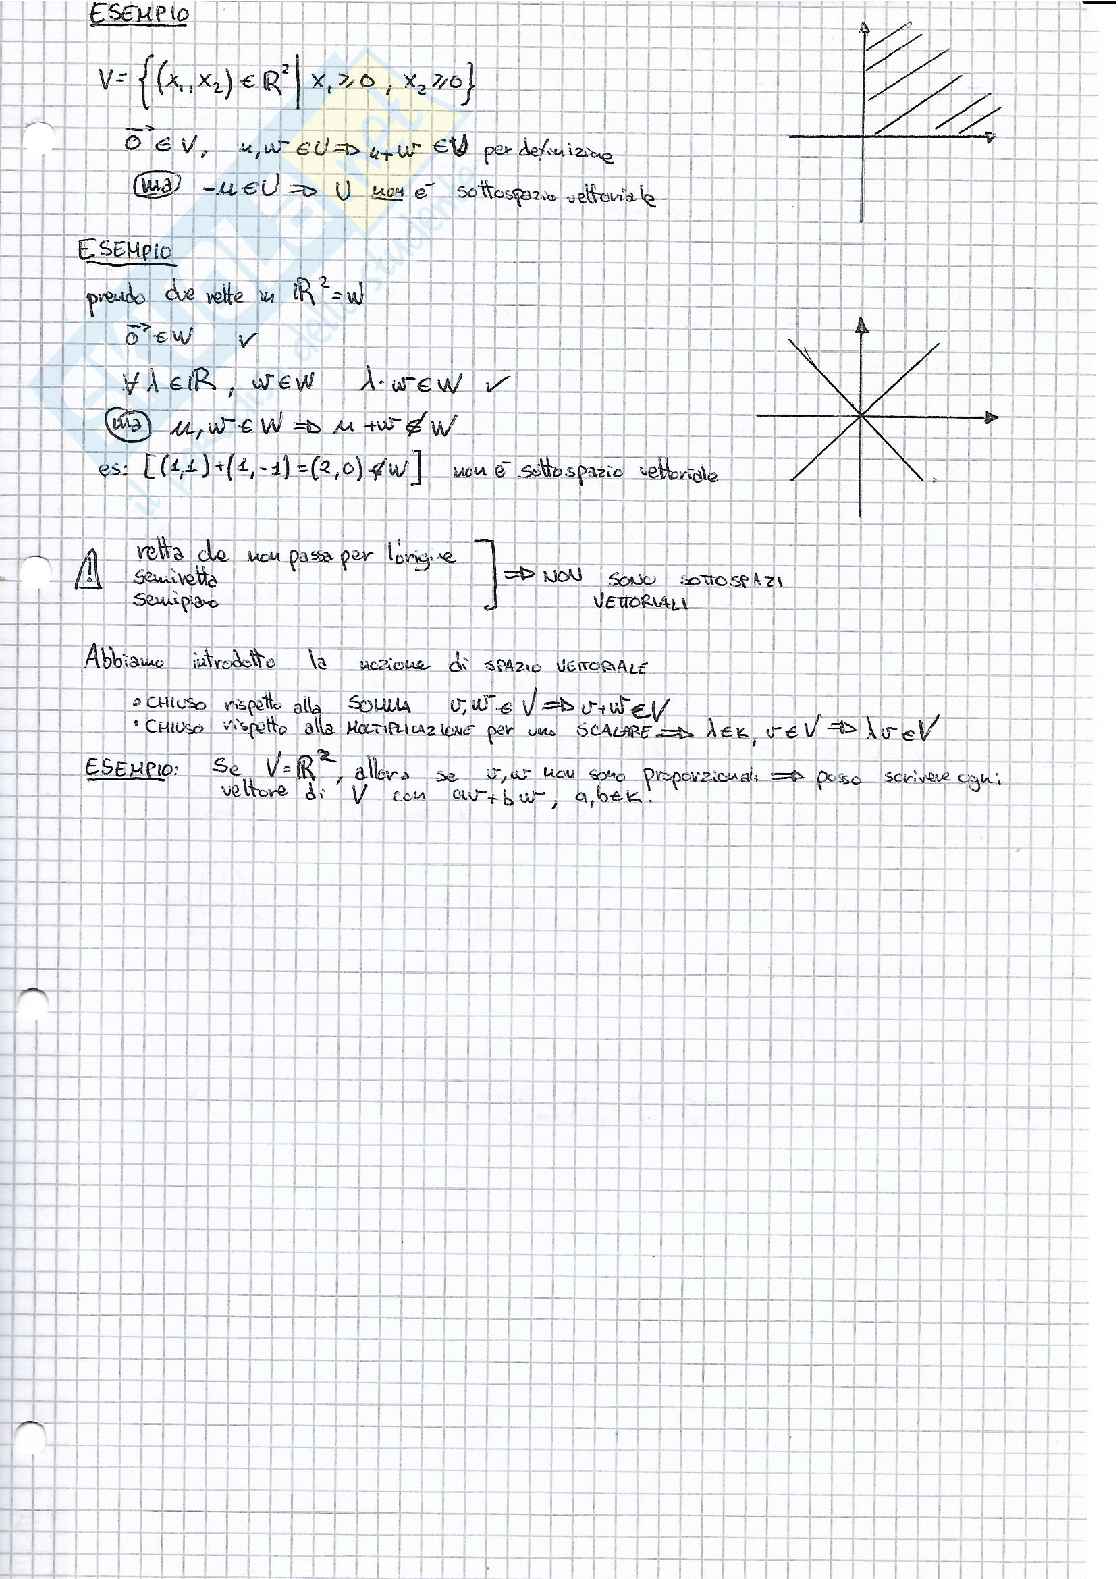 ESEMPIO
V = {(x₁, x₂) ∈ ℝ² | x₁ ≥ 0, x₂ ≥ 0}
0⃗ ∈ V, u, w ∈ U ⇒ u + w ∈ U per definizione
ma -u ∈ U ⇒ U non è sottospazio vettoriale
ESEMPIO
prendo due rette in ℝ² = W
0⃗ ∈ W ✓
∀ λ ∈ ℝ, w ∈ W λ·w ∈ W ✓
ma u, w ∈ W ⇒ u + w ∉ W
es: [(1,1) + (1,-1) = (2,0) ∉ W] non è sottospazio vettoriale
⚠ retta che non passa per l'origine
semiretta
semipiano
⇒ NON SONO SOTTOSPAZI
VETTORIALI
Abbiamo introdotto la nozione di SPAZIO VETTORIALE
• CHIUSO rispetto alla SOMMA v, w ∈ V ⇒ v + w ∈ V
• CHIUSO rispetto alla MOLTIPLICAZIONE per uno SCALARE ⇒ λ ∈ K, v ∈ V ⇒ λv ∈ V
ESEMPIO: Se V = ℝ², allora se v, w non sono proporzionali ⇒ posso scrivere ogni
vettore di V con av + bw, a, b ∈ K.